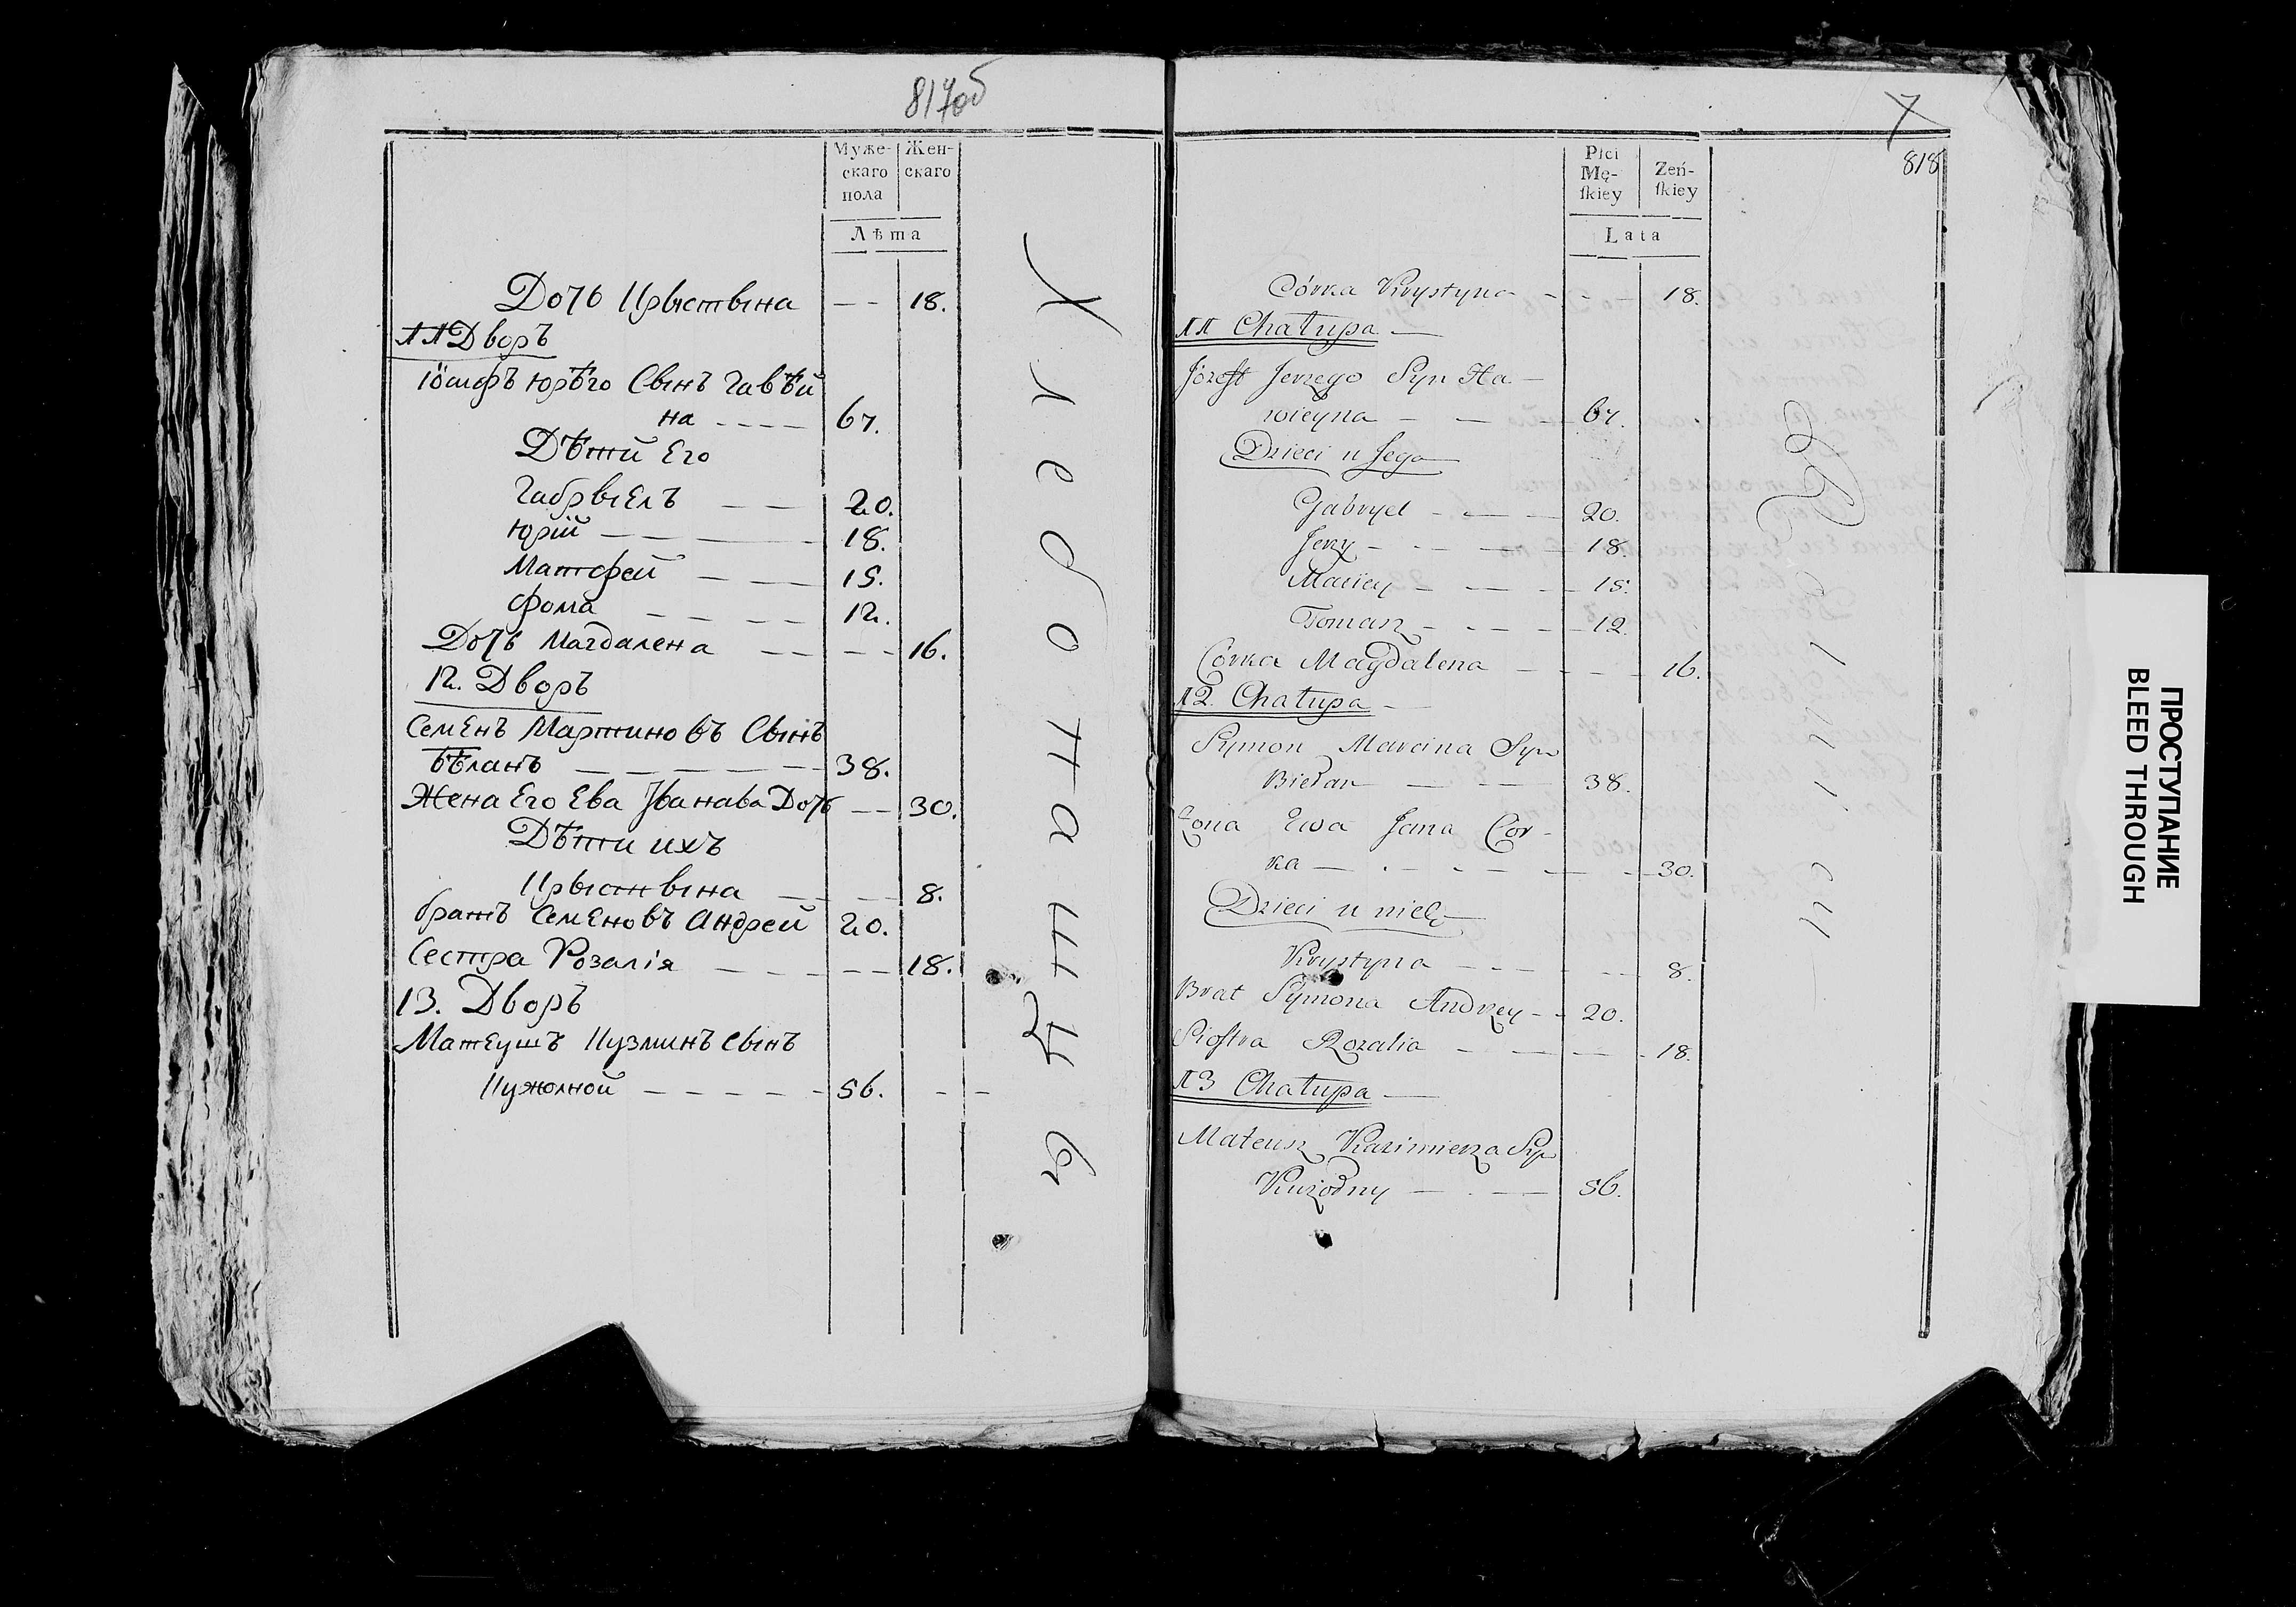 817об
Муже-
скаго
пола
Жен-
скаго
Лѣта
Дочь Крыстына — — 18.
11 Дворъ
Іосифъ Юрѣго Сынъ Гавѣй
на — — — — 67.
Дѣти Его
Габрыелъ — — 20.
Юрій — — — 18.
Матфей — — — 15.
Фома — — — — 12.
Дочь Магдалена — — — — 16.
12. Дворъ
Семенъ Мартиновъ Сынъ
Бѣланъ — — — — — 38.
Жена Его Ева Іванава Дочь — — 30.
Дѣти ихъ
Крыстына — — — 8.
братъ Семеновъ Андрей 20.
Сестра Розалія — — — — — 18.
13. Дворъ
Матеушъ Кузминъ сынъ
Кужолной — — — — — 56. — —
Хлебо
818
Płci
Mę-
ſkiey
Zeń-
ſkiey
Lata
Córka Krystyna — - — 18.
11 Chałupa —
Józeff Jerzego Syn Ha—
wieyna — — — 67.
Dzieci u Jego
Gabryel - — — 20.
Jerzy - - - — — 18.
Maciey — - — — 15.
Tomasz - - - — — 12.
Córka Magdalena — - - - 16.
12. Chałupa —
Symon Marcina Syn
Biełan — — — 38.
Zona Ewa Jana Cor-
ka — . — - — — — 30.
Dzieci u nich
Krystyna — - - — - - - 8.
Brat Symona Andrzey - - 20.
Sioſtra Rozalia — — — — - 18.
13 Chałupa —
Mateusz Kazimierza Syn
Kużodny — . — — 56.
ПРОСТУПАНИЕ
BLEED THROUGH